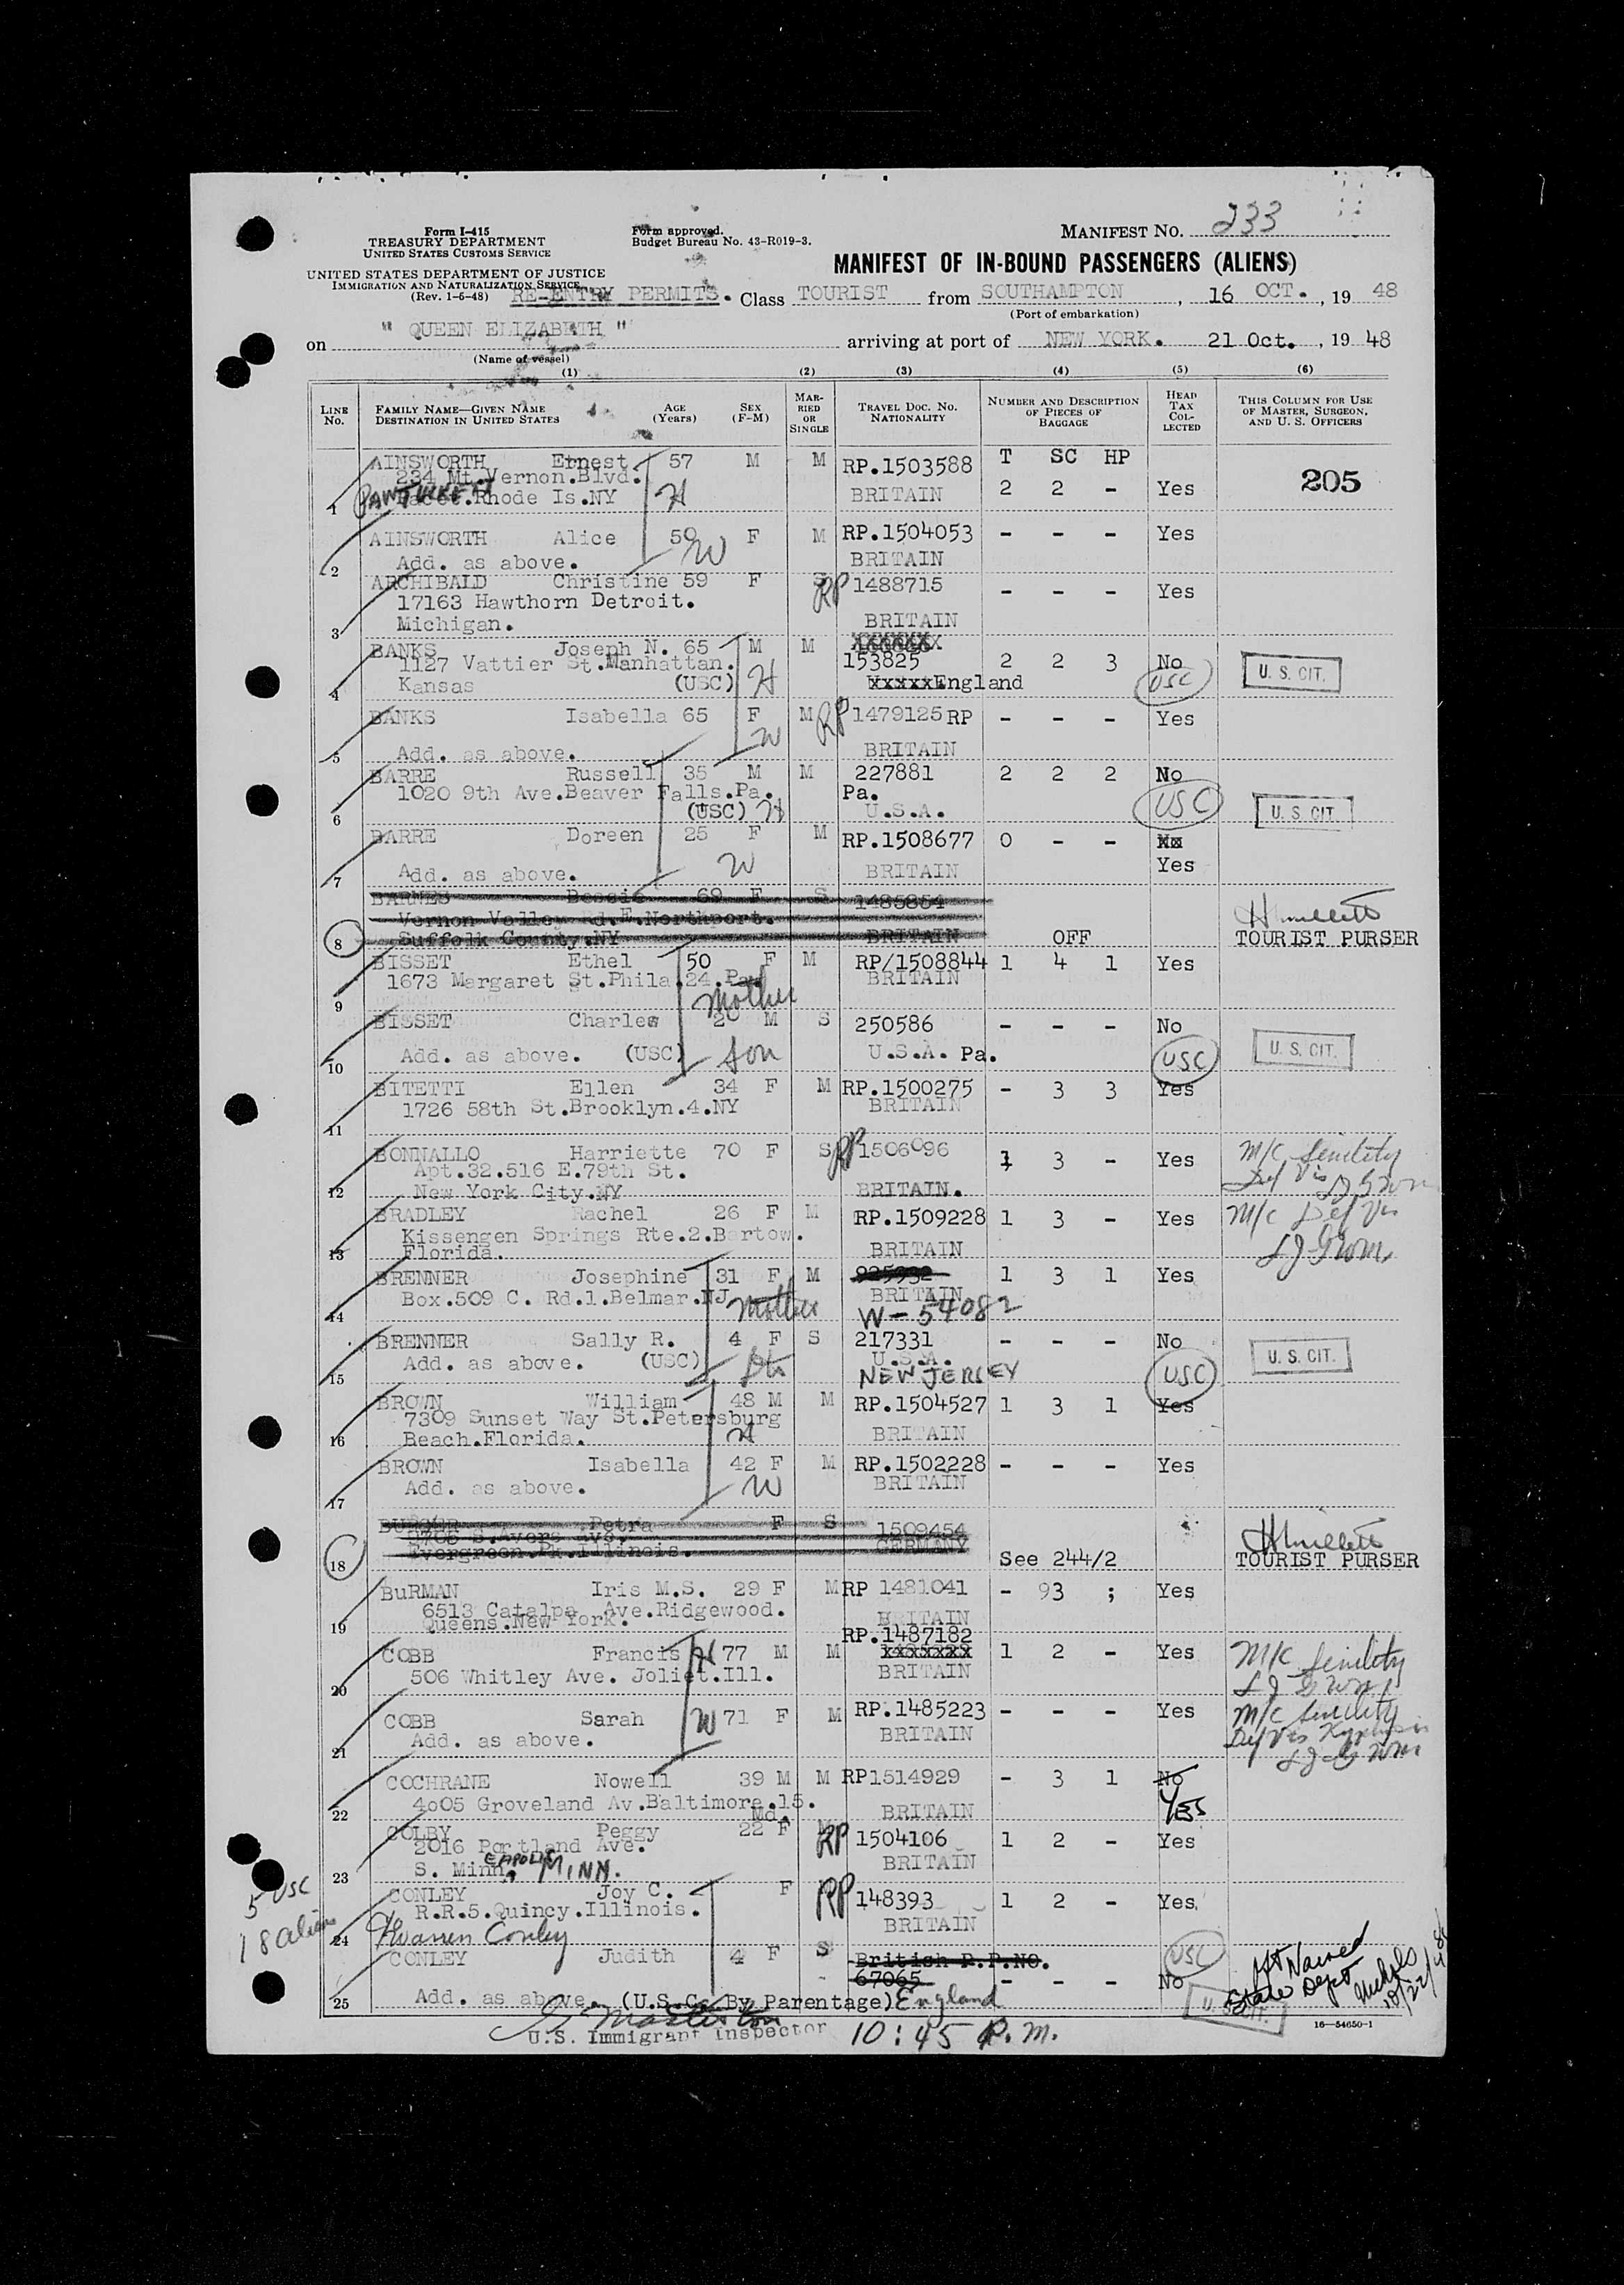 Form I-415
TREASURY DEPARTMENT
UNITED STATES CUSTOMS SERVICE
Form approved.
Budget Bureau No. 43-R019-3.
MANIFEST NO. 233
UNITED STATES DEPARTMENT OF JUSTICE
IMMIGRATION AND NATURALIZATION SERVICE
(Rev. 1-6-48)
MANIFEST OF IN-BOUND PASSENGERS (ALIENS)
RE-ENTRY PERMITS. Class TOURIST from SOUTHAMPTON, 16 OCT., 19 48
(Port of embarkation)
on " QUEEN ELIZABETH " arriving at port of NEW YORK. 21 Oct., 19 48
(Name of vessel)
(1) (2) (3) (4) (5) (6)
LINE No. FAMILY NAME—GIVEN NAME DESTINATION IN UNITED STATES AGE (Years) SEX (F-M) MARRIED OR SINGLE TRAVEL DOC. NO. NATIONALITY NUMBER AND DESCRIPTION OF PIECES OF BAGGAGE HEAD TAX COLLECTED THIS COLUMN FOR USE OF MASTER, SURGEON, AND U. S. OFFICERS
T SC HP
AINSWORTH Ernest 57 M M RP.1503588
234 Mt.Vernon.Blvd.
1 PAWTUCKET Rhode Is.NY H BRITAIN 2 2 - Yes 205
AINSWORTH Alice 59 F M RP.1504053 - - - Yes
2 Add. as above. W BRITAIN
ARCHIBALD Christine 59 F S RP 1488715 - - - Yes
17163 Hawthorn Detroit.
3 Michigan. BRITAIN
BANKS Joseph N. 65 M M XXXXXXX
1127 Vattier St.Manhattan. 153825 2 2 3 No
4 Kansas (USC) H xxxxxEngland USC U. S. CIT.
BANKS Isabella 65 F M RP 1479125 RP - - - Yes
5 Add. as above. W BRITAIN
BARRE Russell 35 M M 227881 2 2 2 No
1020 9th Ave.Beaver Falls.Pa. Pa.
6 (USC) H U.S.A. USC U. S. CIT.
BARRE Doreen 25 F M RP.1508677 0 - - Nx
7 Add. as above. W BRITAIN Yes
BARNES Bessie 69 F S 1485854
Vernon Valley Rd.E.Northport.
8 Suffolk County.NY BRITAIN OFF TOURIST PURSER
BISSET Ethel 50 F M RP/1508844 1 4 1 Yes
1673 Margaret St.Phila.24.Pa. BRITAIN
9 Mother
BISSET Charles 20 M S 250586 - - - No
10 Add. as above. (USC) Son U.S.A. Pa. USC U. S. CIT.
BITETTI Ellen 34 F M RP.1500275 - 3 3 Yes
1726 58th St.Brooklyn.4.NY BRITAIN
11
BONNALLO Harriette 70 F S RP 1506096 1 3 - Yes M/C Senility
Apt.32.516 E.79th St. Def Vis
12 New York City.NY BRITAIN.
BRADLEY Rachel 26 F M RP.1509228 1 3 - Yes M/C Def Vis
Kissengen Springs Rte.2.Bartow.
13 Florida. BRITAIN
BRENNER Josephine 31 F M 925932 1 3 1 Yes
Box.509 C. Rd.1.Belmar.NJ BRITAIN
14 Mother W-54082
BRENNER Sally R. 4 F S 217331 - - - No
Add. as above. (USC) U.S.A. U. S. CIT.
15 NEW JERSEY USC
BROWN William 48 M M RP.1504527 1 3 1 Yes
7309 Sunset Way St.Petersburg
16 Beach.Florida. H BRITAIN
BROWN Isabella 42 F M RP.1502228 - - - Yes
Add. as above. W BRITAIN
17
Petra F S 1509454
9705 S.Avers Ave. GERMANY
18 Evergreen.Pk.Illinois. See 244/2 TOURIST PURSER
BuRMAN Iris M.S. 29 F M RP 1481041 - 93 ; Yes
6513 Catalpa Ave.Ridgewood.
19 Queens.New York. BRITAIN
RP.1487182
COBB Francis H 77 M M xxxxxxx 1 2 - Yes M/C Senility
506 Whitley Ave. Joliet.Ill. BRITAIN
20
COBB Sarah W 71 F M RP.1485223 - - - Yes M/C Senility
Add. as above. BRITAIN Def Vis
21
COCHRANE Nowell 39 M M RP1514929 - 3 1 No
22 4005 Groveland Av.Baltimore.15. Md. BRITAIN YES
COLBY Peggy 22 F M RP 1504106 1 2 - Yes
2016 Portland Ave. BRITAIN
23 S. Minn EAPOLIS MINN.
CONLEY Joy C. F RP 148393 1 2 - Yes
5 USC R.R.5.Quincy.Illinois. BRITAIN
18 aliens 24 Conley
CONLEY Judith 4 F S British P.P.NO. USC
67065 - - - No State Dept Nichols 10/22/48
25 Add. as above. (U.S.C. By Parentage) England U. S. CIT.
U.S. Immigrant Inspector 10:45 P.M.
16—54650-1